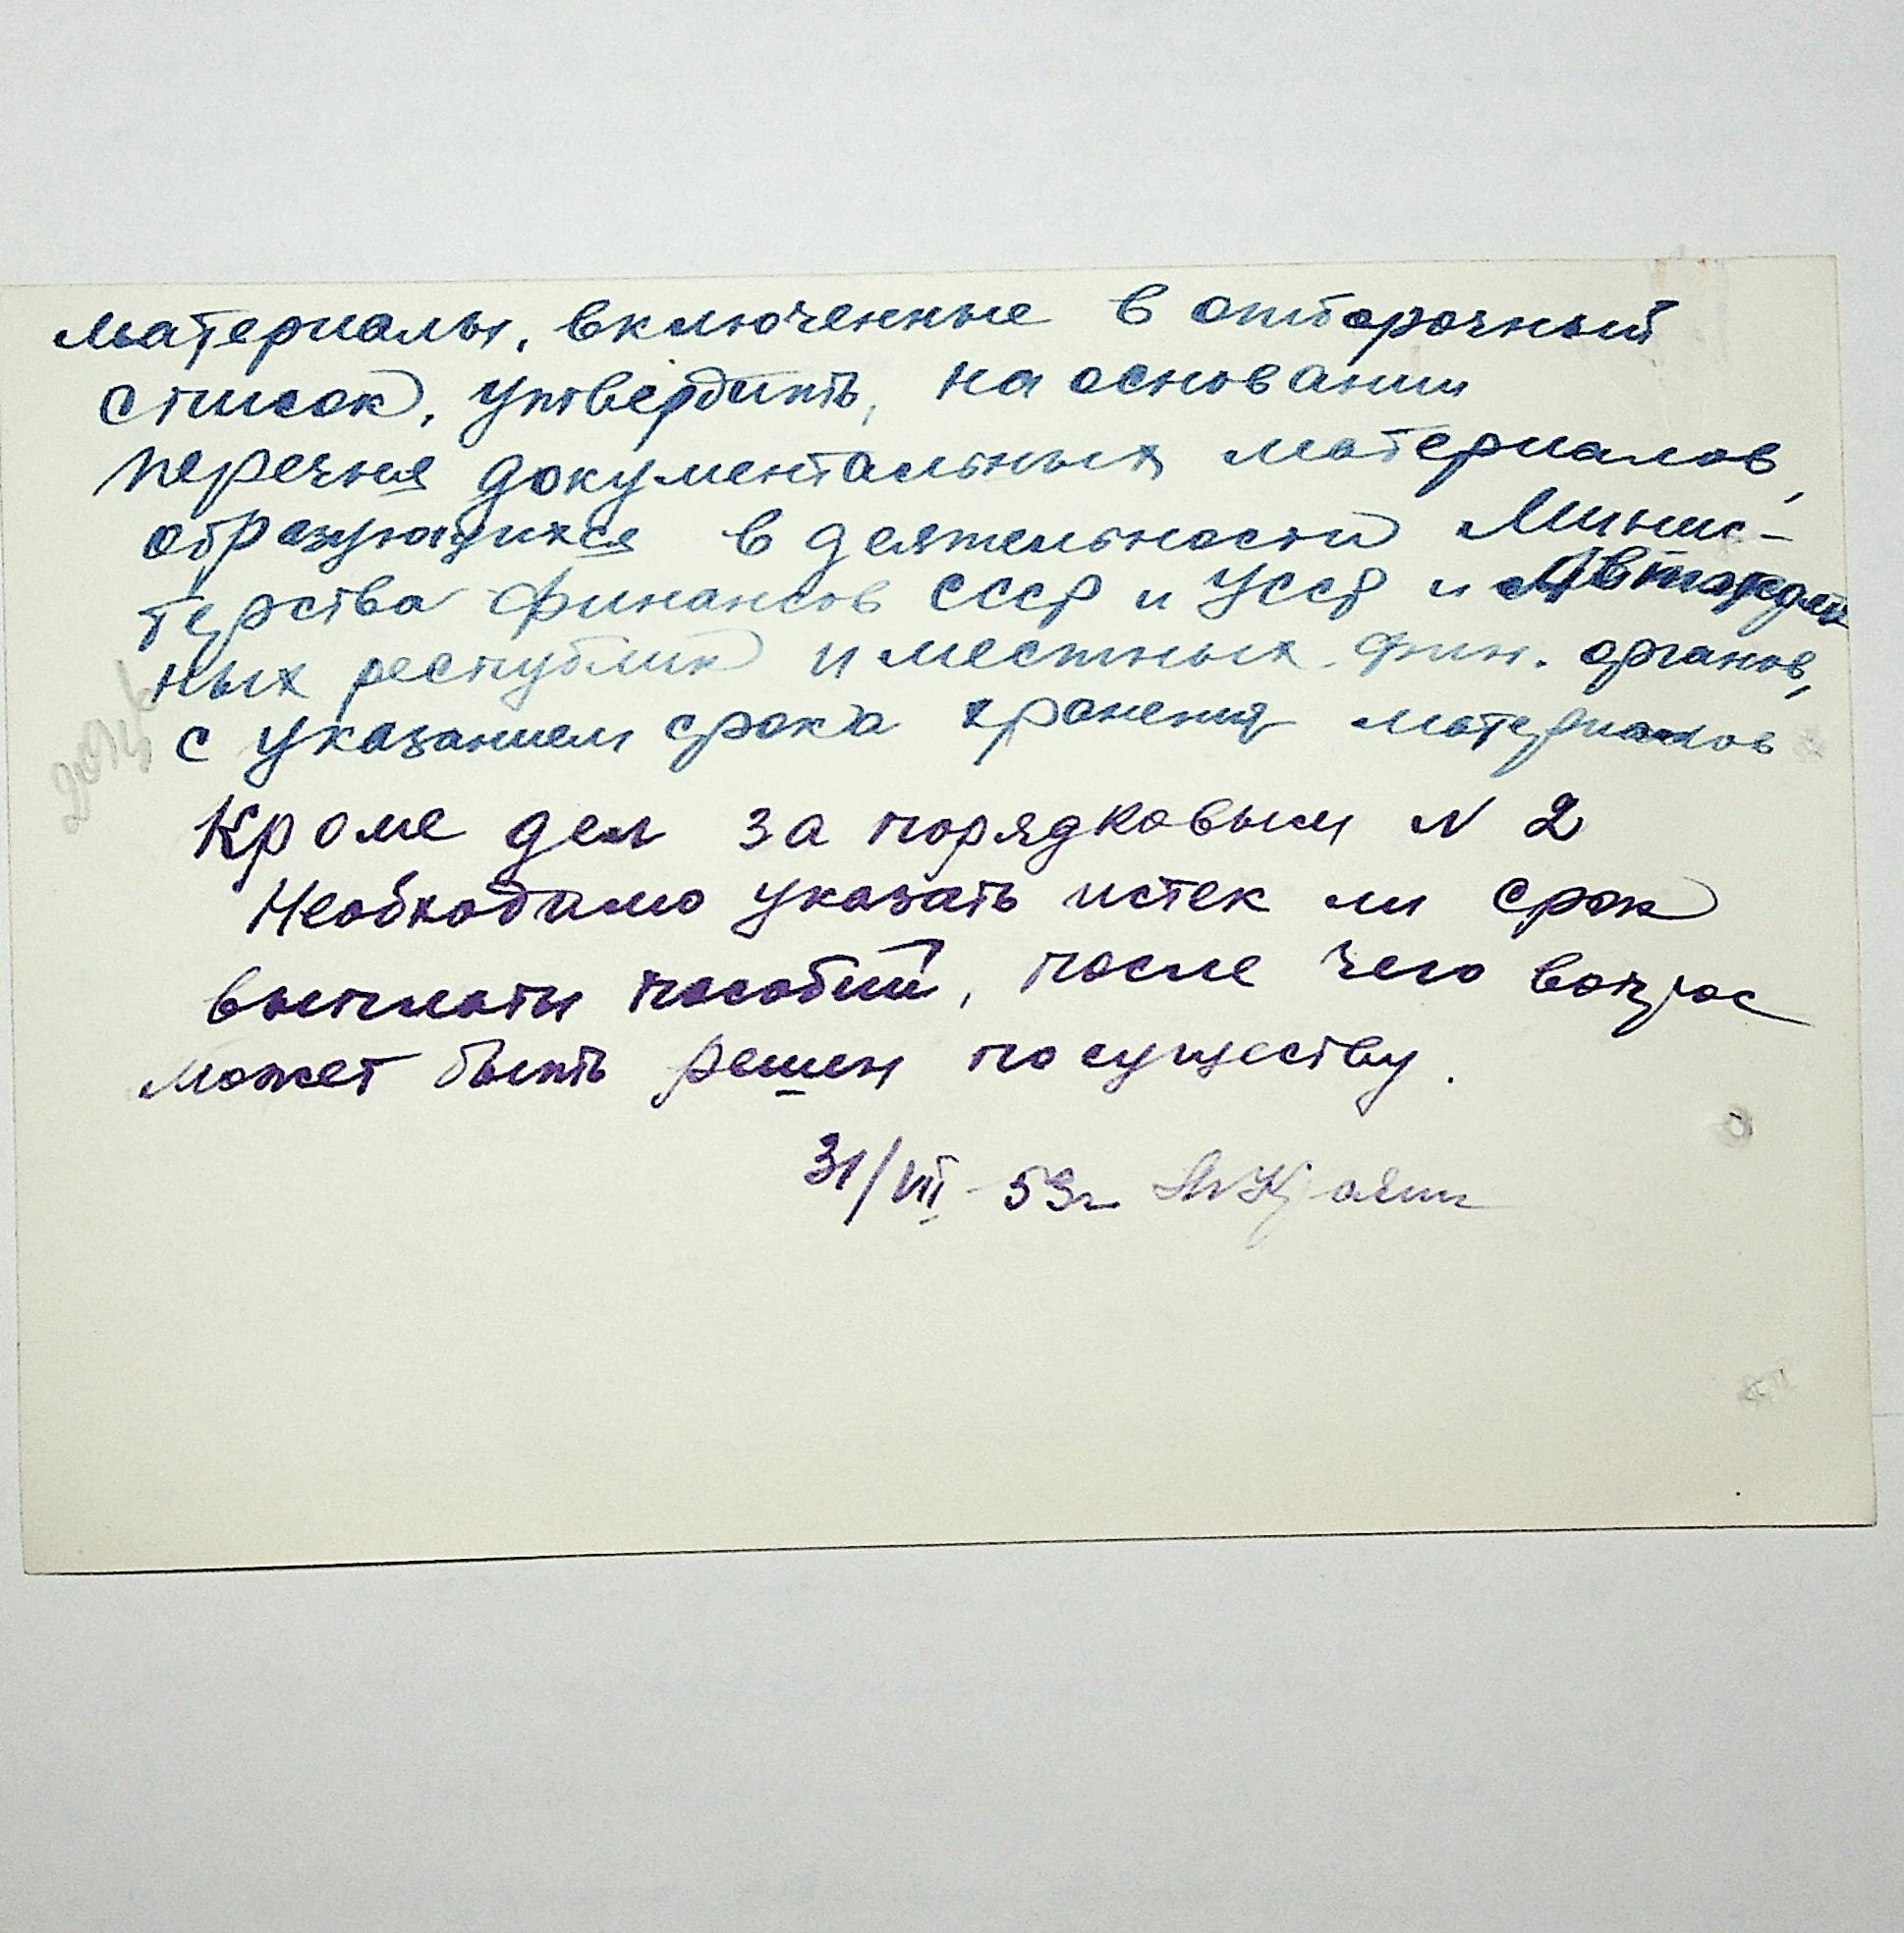 материалы, включенные в отборочный
список, утвердить, на основании
перечня документальных материалов,
образующихся в деятельности Минис-
терства финансов СССР и УССР и
ных республик и местных фин. органов,
с указанием срока хранения материалов
Кроме дел за порядковым N 2
Необходимо указать истек ли срок
выплаты пособий, после чего вопрос
может быть решен по существу.
31/VIII - 53г